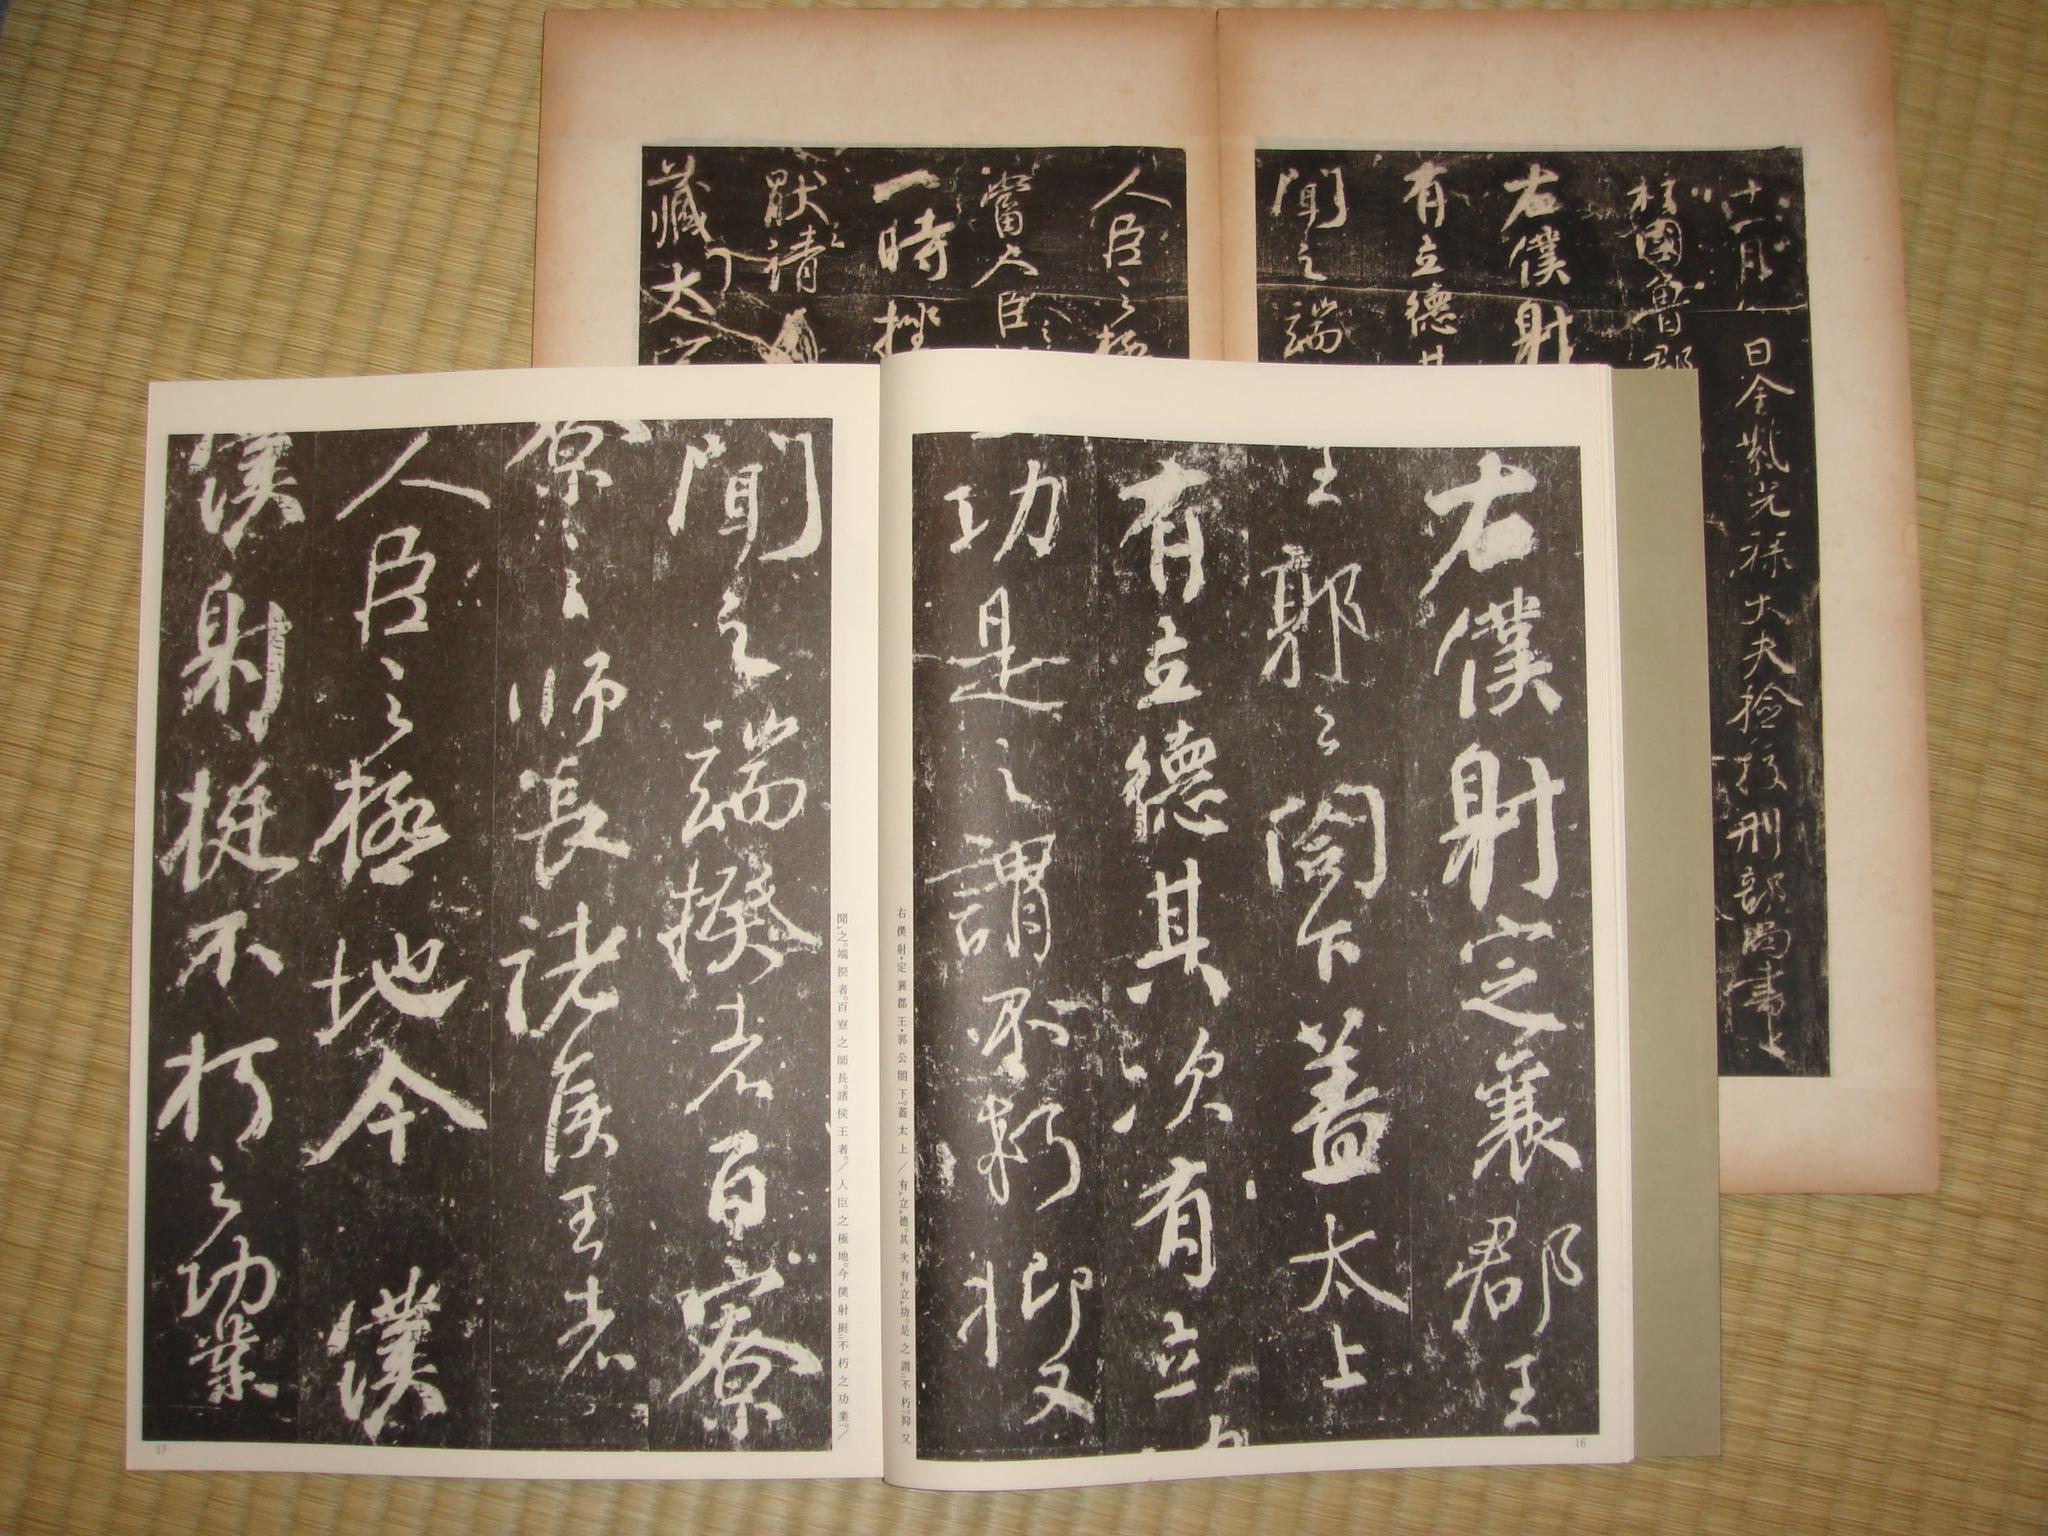 右僕射定襄郡王
郭公閤下蓋太上
有立德其次有立
功是之謂不朽抑又
16
右僕射・定襄郡王・郭公閤下。蓋太上／有立德。其次有立功。是之謂不朽。抑又
聞之端揆者百寮
之師長諸侯王者
人臣之極地今僕
射挺不朽之功業
17
聞之。端揆者。百寮之師長。諸侯王者。／人臣之極地。今僕射挺不朽之功業。／
十一月 日金紫光祿大夫檢校刑部尚書上
柱國魯郡
右僕射
有立德其
聞之端
人臣之極
當人臣
一時挫
猒請
藏太